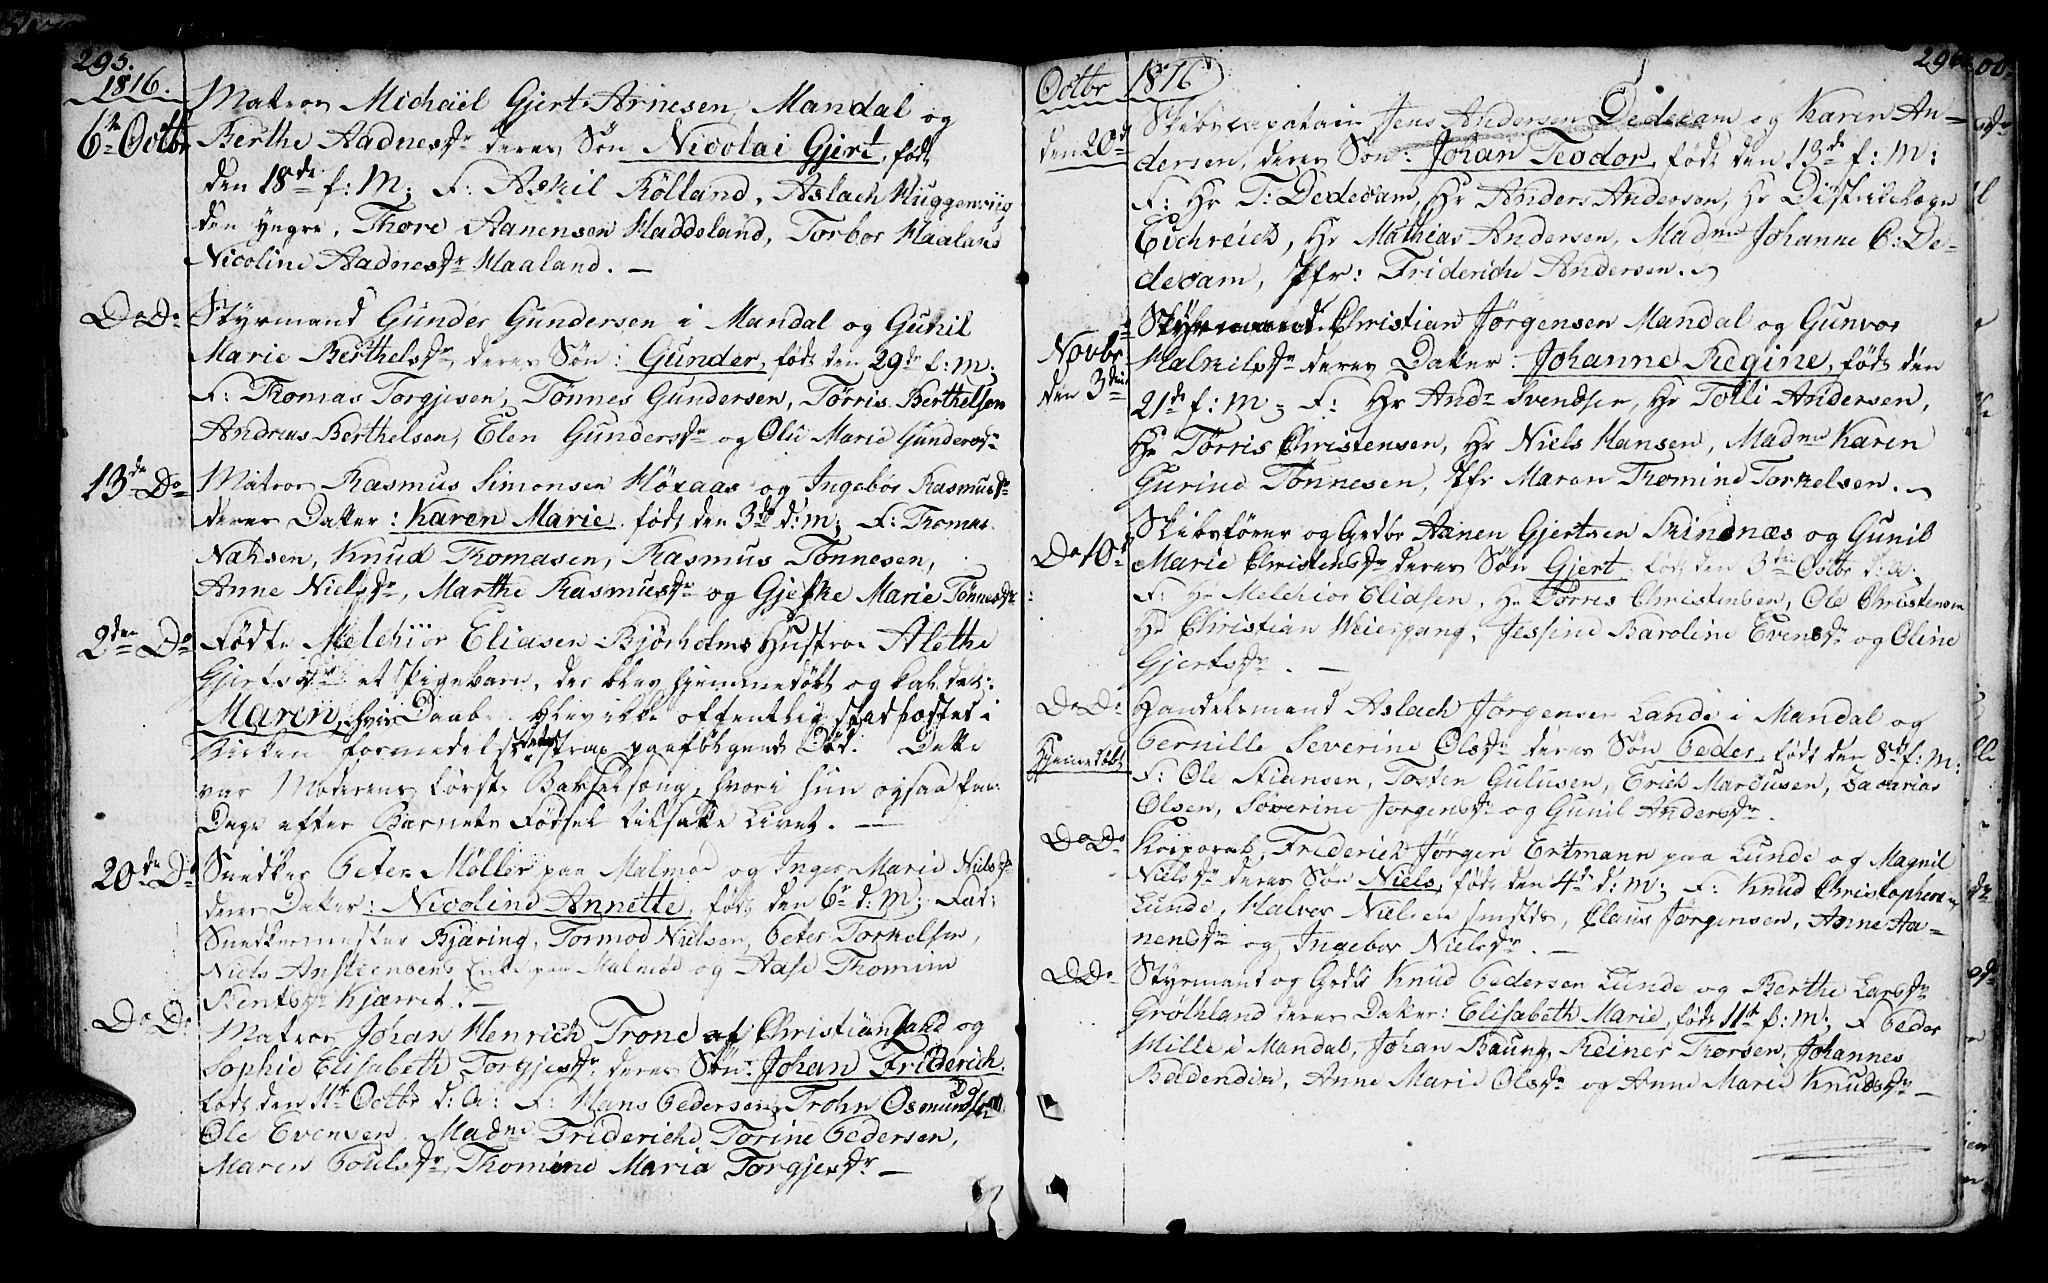 295.
1816.
6te Octbr
Matros Michaël Gjert Arnesen, Mandal og
Berthe Aadnesdr deres Søn Nicolai Gjert, født
den 18de f: M; F: Askil Rölland, Aslach Huggenviig
den yngre, Thore Aanensen Haddeland, Torbor Haaland
Nicoline Aadnesdr Haaland. —
Do Do
Styrmand Gunder Gundersen i Mandal og Gunil
Marie Berthelsdr, deres Søn: Gunder, født den 29de f: M;
F: Thomas Torgjesen, Tønnes Gundersen, Tørris Berthelsen
Andreas Berthelsen, Elen Gundersdr og Olie Marie Gundersdr
13de Do
Matros Rasmus Simonsen Höxaas og Ingebor Rasmusdr
deres Datter: Karen Marie født den 3de d: M; F: Thomas
Nahsen, Knud Thomasen, Rasmus Tønnesen,
Anne Nielsdr, Marthe Rasmusdr og Gjeske Marie Tønnesdr
2den Do
Fødte Melchior Eliasen Bjørholms Hustroe Alethe
Gjertsdr et Pigebarn, der blev hjemmedøbt og kaldet:
Maren, hvis Daab ei blev offentlig stadfæstet i
Kirken formedelst dets strax paafølgende Død. Dette
var Moderens første Barselseng, hvori hun ogsaa faa
Dage efter Barnets Fødsel tilsatte Livet. —
20de Do
Snedker Peter Møller paa Malmøe og Inger Marie Nielsdr
deres Datter: Nicoline Annette, født den 6te d: M; Fad:
Snedkermester Bjæring, Tormod Nielsen, Peter Torkelsen,
Niels Anstensens Enke paa Malmøe og Aase Thomine
Bentsdr Kjærret. —
Do Do
Matros Johan Henrich Trone af Christiansand og
Sophie Elisabeth Torgjesdr deres Søn: Johan Friderich
født den 11te Octbr d: A: F: Hans Pedersen, Trohn Osmundsen
Ole Evensen, Madme Frideriche Torine Pedersen,
Maren Poulsdr, Thomine Maria Torgjesdr —
296
Octbr 1816
den 20de
Skibscapatain Jens Andersen Dedecam og Karen An-
dersen, deres Søn: Johan Teodor, født den 13de f: M:
F: Hr T: Dedecam, Hr Anders Andersen, Hr Districtslæge
Eichreich, Hr Mathias Andersen, Madme Johanne C: De-
decam, Jfr: Frideriche Andersen.
Novbr
den 3die
Styrmand Christian Jørgensen Mandal og Gunvor
Halkilsdr deres Datter: Johanne Regine, født den
21de f: M; F: Hr Andr Svendsen, Hr Tolli Andersen,
Hr Tørris Christensen, Hr Niels Hansen, Madme Karen
Gurine Tønnesen, Jfr Maren Thomine Torkelsen.
Do 10de
Skibsfører og Grdbr Aanen Gjertsen Skindnæs og Gunil
Marie Christensdr deres Søn Gjert født den 3die Octbr d: A;
F: Hr Melchior Eliasen, Hr Tørris Christensen, Ole Christensen
Hr Christian Weiergang, Jessine Caroline Evensdr og Oline
Gjertsdr. —
Do Do
Hjemmedøbt
Handelsmand Aslach Jørgensen Lande i Mandal og
Pernille Severine Olsdr deres Søn Peder, født den 8de f: M:
F: Ole Stiansen, Tosten Gulusen, Erich Marcusen, Zacarias
Olsen, Søverine Jørgensdr og Gunil Andersdr.
Do Do
Korporal Friderich Jørgen Ertmann paa Lunde og Magnil
Nielsdr deres Søn Niels, født den 4de d: M; F: Knud Christophersen
Lunde, Halvor Nielsen, Claus Jørgensen, Anne Aa-
nensdr og Ingebor Nielsdr. —
Do Do
Styrmand og Grdbr Knud Pedersen Lunde og Berthe Larsdr
Grølhland deres Datter: Elisabeth Marie, født 11te f: M; F Peder
Mille i Mandal, Johan Baung, Reiner Thorsen, Johannes
Badendin, Anne Marie Olsdr og Anne Marie Knudsdr —